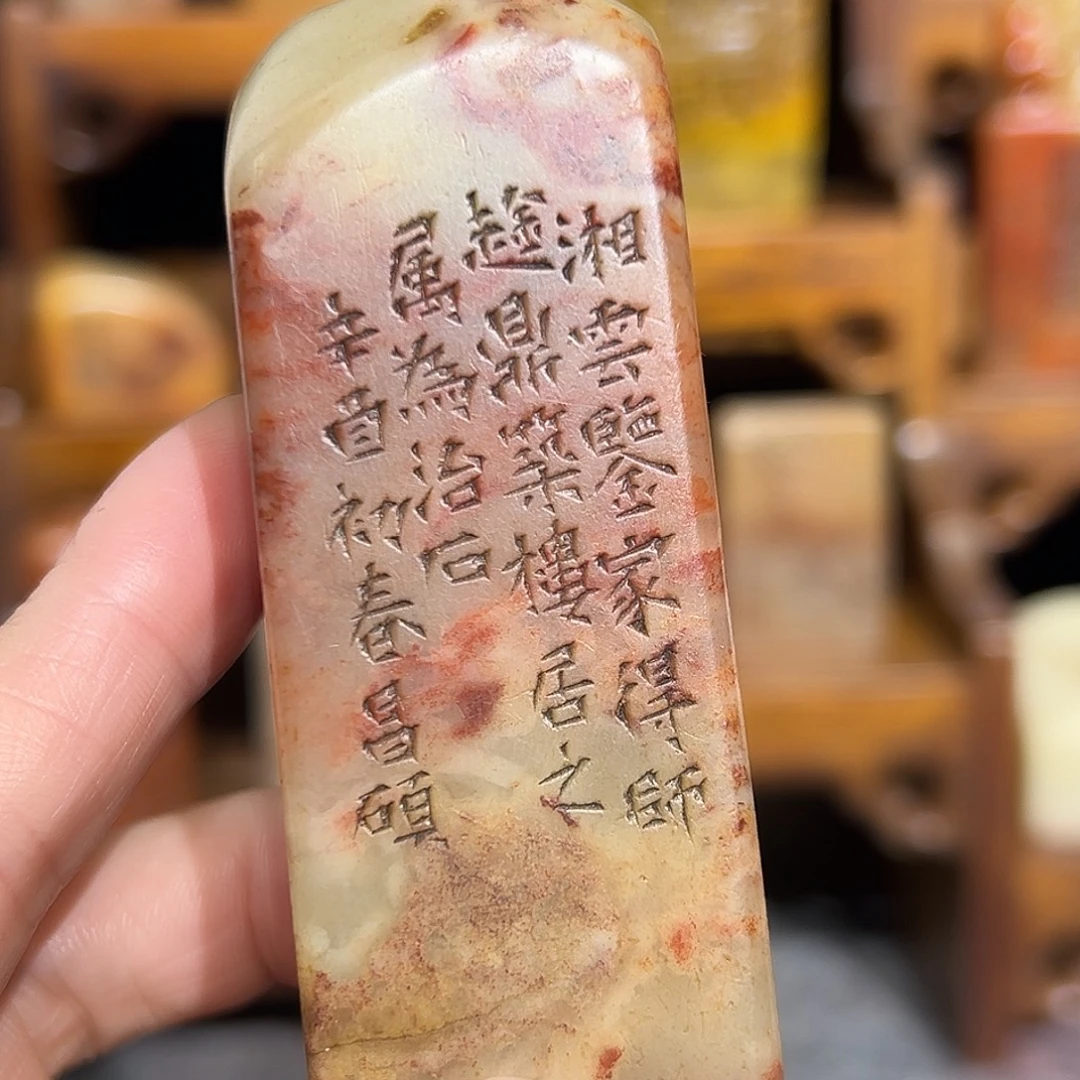 湘雲鑒家得師
趛鼎築樓居之
属為治石
辛酉初春昌碩